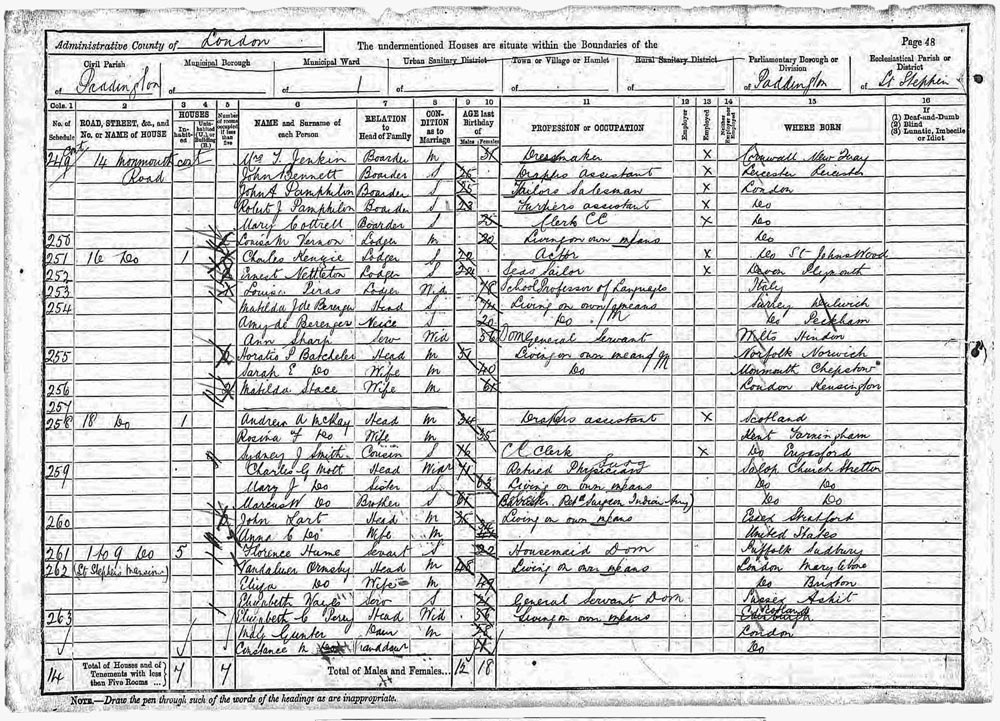 Administrative County of London The undermentioned Houses are situate within the Boundaries of the Page 48
Civil Parish Municipal Borough Municipal Ward Urban Sanitary District Town or Village or Hamlet Rural Sanitary District Parliamentary Borough or Division Ecclesiastical Parish or District
of Paddington of of of of of of Paddington of St Stephen
Cols. 1 2 3 4 5 6 7 8 9 10 11 12 13 14 15 16
No. of Schedule ROAD, STREET, &c., and No. or NAME of HOUSE HOUSES Inhabited Uninhabited (U.), or Building (B.) Number of rooms occupied if less than five NAME and Surname of each Person RELATION to Head of Family CONDITION as to Marriage AGE last Birthday of Males Females PROFESSION or OCCUPATION Employer Employed Neither Employer nor Employed WHERE BORN If (1) Deaf-and-Dumb (2) Blind (3) Lunatic, Imbecile or Idiot
249 14 Monmouth cont Mrs T. Jenkin Boarder M 31 Dressmaker X Cornwall New Quay
Road John Bennett Boarder S 25 Drapers assistant X Leicester Leicester
John A Pamphilon Boarder S 25 Tailors Salesman X London
Robert J Pamphilon Boarder S 23 Furriers assistant X Do
Mary Cottrell Boarder S 25 Clerk CC X Do
250 Louisa M Vernon Lodger M 20 Living on own means Do
251 16 Do 1 Charles Lodger S Actor X Do St Johns Wood
252 Ernest Nettleton Lodger S Seas Sailor X Devon Plymouth
253 Louise Piras Lodger Wid 78 School Professor of Languages Italy
254 Matilda J de Berenger Head S Living on own means Surrey Dulwich
Amy de Berenger Neice S 20 Do Do Peckham
Ann Sharp Serv Wid 56 Dom General Servant Wilts Hindon
255 Horatio P Batcheler Head M 51 Living on own means Norfolk Norwich
Sarah E Do Wife M 40 Do Monmouth Chepstow
256 Matilda Stace Wife M 61 London Kensington
257
258 18 Do 1 Andrew A McKay Head M 34 Drapers assistant X Scotland
Rosina F Do Wife M 35 Kent Farningham
Sydney J Smith Cousin S 16 CC Clerk X Do Eynsford
259 Charles G Mott Head Widr 71 Retired Physician Surg Salop Church Stretton
Mary J Do Sister S 63 Living on own means Do Do
Marcus W Do Brother S 61 Barrister Retd Surgeon Indian Army Do Do
260 John Lart Head M 35 Living on own means Essex Stratford
Anna C Do Wife M United States
261 1 to 9 Do 5 Florence Hume Servant S 22 Housemaid Dom Suffolk Sudbury
262 (St Stephens Mansions) Vandaluer Ornsby Head M 48 Living on own means London Maryletone
Eliza Do Wife M 49 Do Brixton
Elizabeth Serv S General Servant Dom Sussex
263 Elizabeth C Head Wid 56 Living on own means Scotland Edinburgh
May Gunter Daur M 28 London
Constance M Granddaur Do
14 Total of Houses and of Tenements with less than Five Rooms 7 7 Total of Males and Females 12 18
NOTE.—Draw the pen through such of the words of the headings as are inappropriate.